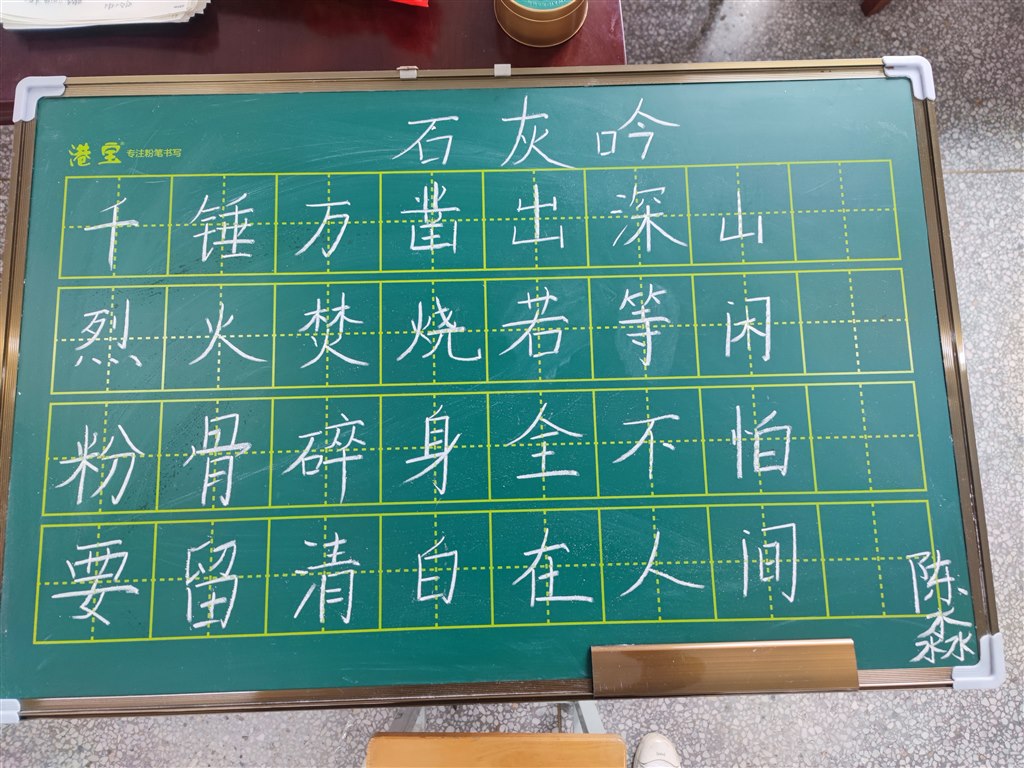 石灰吟
港宝 专注粉笔书写
千锤万凿出深山
烈火焚烧若等闲
粉骨碎身全不怕
要留清白在人间
陈淼